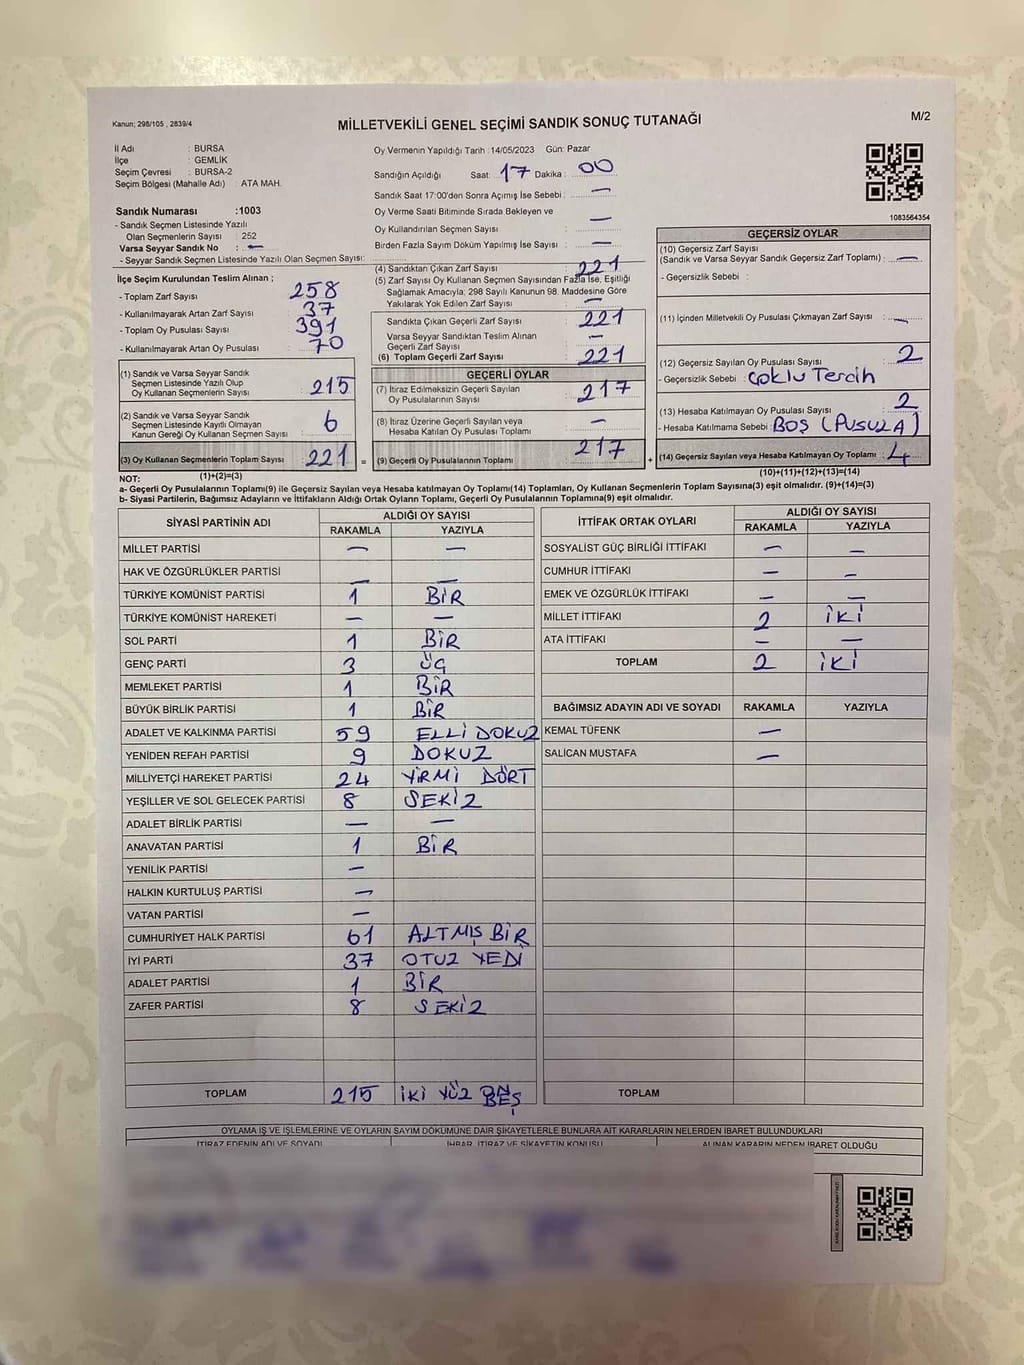 Kanun; 298/105 , 2839/4
MİLLETVEKİLİ GENEL SEÇİMİ SANDIK SONUÇ TUTANAĞI
M/2
İl Adı : BURSA
İlçe : GEMLİK
Seçim Çevresi : BURSA-2
Seçim Bölgesi (Mahalle Adı) : ATA MAH.
Sandık Numarası :1003
- Sandık Seçmen Listesinde Yazılı
Olan Seçmenlerin Sayısı : 252
Varsa Seyyar Sandık No : —
- Seyyar Sandık Seçmen Listesinde Yazılı Olan Seçmen Sayısı:
Oy Vermenin Yapıldığı Tarih : 14/05/2023 Gün: Pazar
Sandığın Açıldığı Saat: 17 Dakika : 00
Sandık Saat 17:00'den Sonra Açımış İse Sebebi : —
Oy Verme Saati Bitiminde Sırada Bekleyen ve
Oy Kullandırılan Seçmen Sayısı : —
Birden Fazla Sayım Döküm Yapılmış İse Sayısı : —
1083564354
İlçe Seçim Kurulundan Teslim Alınan ;
- Toplam Zarf Sayısı : 258
- Kullanılmayarak Artan Zarf Sayısı : 37
- Toplam Oy Pusulası Sayısı : 391
- Kullanılmayarak Artan Oy Pusulası : 70
(1) Sandık ve Varsa Seyyar Sandık
Seçmen Listesinde Yazılı Olup
Oy Kullanan Seçmenlerin Sayısı : 215
(2) Sandık ve Varsa Seyyar Sandık
Seçmen Listesinde Kayıtlı Olmayan
Kanun Gereği Oy Kullanan Seçmen Sayısı : 6
(3) Oy Kullanan Seçmenlerin Toplam Sayısı : 221
(1)+(2)=(3)
(4) Sandıktan Çıkan Zarf Sayısı : 221
(5) Zarf Sayısı Oy Kullanan Seçmen Sayısından Fazla İse, Eşitliği
Sağlamak Amacıyla; 298 Sayılı Kanunun 98. Maddesine Göre
Yakılarak Yok Edilen Zarf Sayısı : —
Sandıkta Çıkan Geçerli Zarf Sayısı : 221
Varsa Seyyar Sandıktan Teslim Alınan
Geçerli Zarf Sayısı : —
(6) Toplam Geçerli Zarf Sayısı : 221
GEÇERLİ OYLAR
(7) İtiraz Edilmeksizin Geçerli Sayılan
Oy Pusulalarının Sayısı : 217
(8) İtiraz Üzerine Geçerli Sayılan veya
Hesaba Katılan Oy Pusulası Toplamı : —
= (9) Geçerli Oy Pusulalarının Toplamı : 217 +
GEÇERSİZ OYLAR
(10) Geçersiz Zarf Sayısı
(Sandık ve Varsa Seyyar Sandık Geçersiz Zarf Toplamı) : —
- Geçersizlik Sebebi :
(11) İçinden Milletvekili Oy Pusulası Çıkmayan Zarf Sayısı : —
(12) Geçersiz Sayılan Oy Pusulası Sayısı : 2
- Geçersizlik Sebebi : Çoklu Tercih
(13) Hesaba Katılmayan Oy Pusulası Sayısı : 2
- Hesaba Katılmama Sebebi : BOŞ (PUSULA)
(14) Geçersiz Sayılan veya Hesaba Katılmayan Oy Toplamı : 4
(10)+(11)+(12)+(13)=(14)
NOT:
a- Geçerli Oy Pusulalarının Toplamı(9) ile Geçersiz Sayılan veya Hesaba Katılmayan Oy Toplamı(14) Toplamları, Oy Kullanan Seçmenlerin Toplam Sayısına(3) eşit olmalıdır. (9)+(14)=(3)
b- Siyasi Partilerin, Bağımsız Adayların ve İttifakların Aldığı Ortak Oyların Toplamı, Geçerli Oy Pusulalarının Toplamına(9) eşit olmalıdır.
SİYASİ PARTİNİN ADI ALDIĞI OY SAYISI
RAKAMLA YAZIYLA
MİLLET PARTİSİ — —
HAK VE ÖZGÜRLÜKLER PARTİSİ — —
TÜRKİYE KOMÜNİST PARTİSİ 1 BİR
TÜRKİYE KOMÜNİST HAREKETİ — —
SOL PARTİ 1 BİR
GENÇ PARTİ 3 ÜÇ
MEMLEKET PARTİSİ 1 BİR
BÜYÜK BİRLİK PARTİSİ 1 BİR
ADALET VE KALKINMA PARTİSİ 59 ELLİ DOKUZ
YENİDEN REFAH PARTİSİ 9 DOKUZ
MİLLİYETÇİ HAREKET PARTİSİ 24 YİRMİ DÖRT
YEŞİLLER VE SOL GELECEK PARTİSİ 8 SEKİZ
ADALET BİRLİK PARTİSİ — —
ANAVATAN PARTİSİ 1 BİR
YENİLİK PARTİSİ —
HALKIN KURTULUŞ PARTİSİ —
VATAN PARTİSİ —
CUMHURİYET HALK PARTİSİ 61 ALTMIŞ BİR
İYİ PARTİ 37 OTUZ YEDİ
ADALET PARTİSİ 1 BİR
ZAFER PARTİSİ 8 SEKİZ
TOPLAM 215 İKİ YÜZ ON BEŞ
İTTİFAK ORTAK OYLARI ALDIĞI OY SAYISI
RAKAMLA YAZIYLA
SOSYALİST GÜÇ BİRLİĞİ İTTİFAKI — —
CUMHUR İTTİFAKI — —
EMEK VE ÖZGÜRLÜK İTTİFAKI — —
MİLLET İTTİFAKI 2 İKİ
ATA İTTİFAKI — —
TOPLAM 2 İKİ
BAĞIMSIZ ADAYIN ADI VE SOYADI RAKAMLA YAZIYLA
KEMAL TÜFENK —
SALİCAN MUSTAFA —
TOPLAM
OYLAMA İŞ VE İŞLEMLERİNE VE OYLARIN SAYIM DÖKÜMÜNE DAİR ŞİKAYETLERLE BUNLARA AİT KARARLARIN NELERDEN İBARET BULUNDUKLARI
İTİRAZ EDENİN ADI VE SOYADI İHBAR, İTİRAZ VE ŞİKAYETİN KONUSU ALINAN KARARIN NEDEN İBARET OLDUĞU